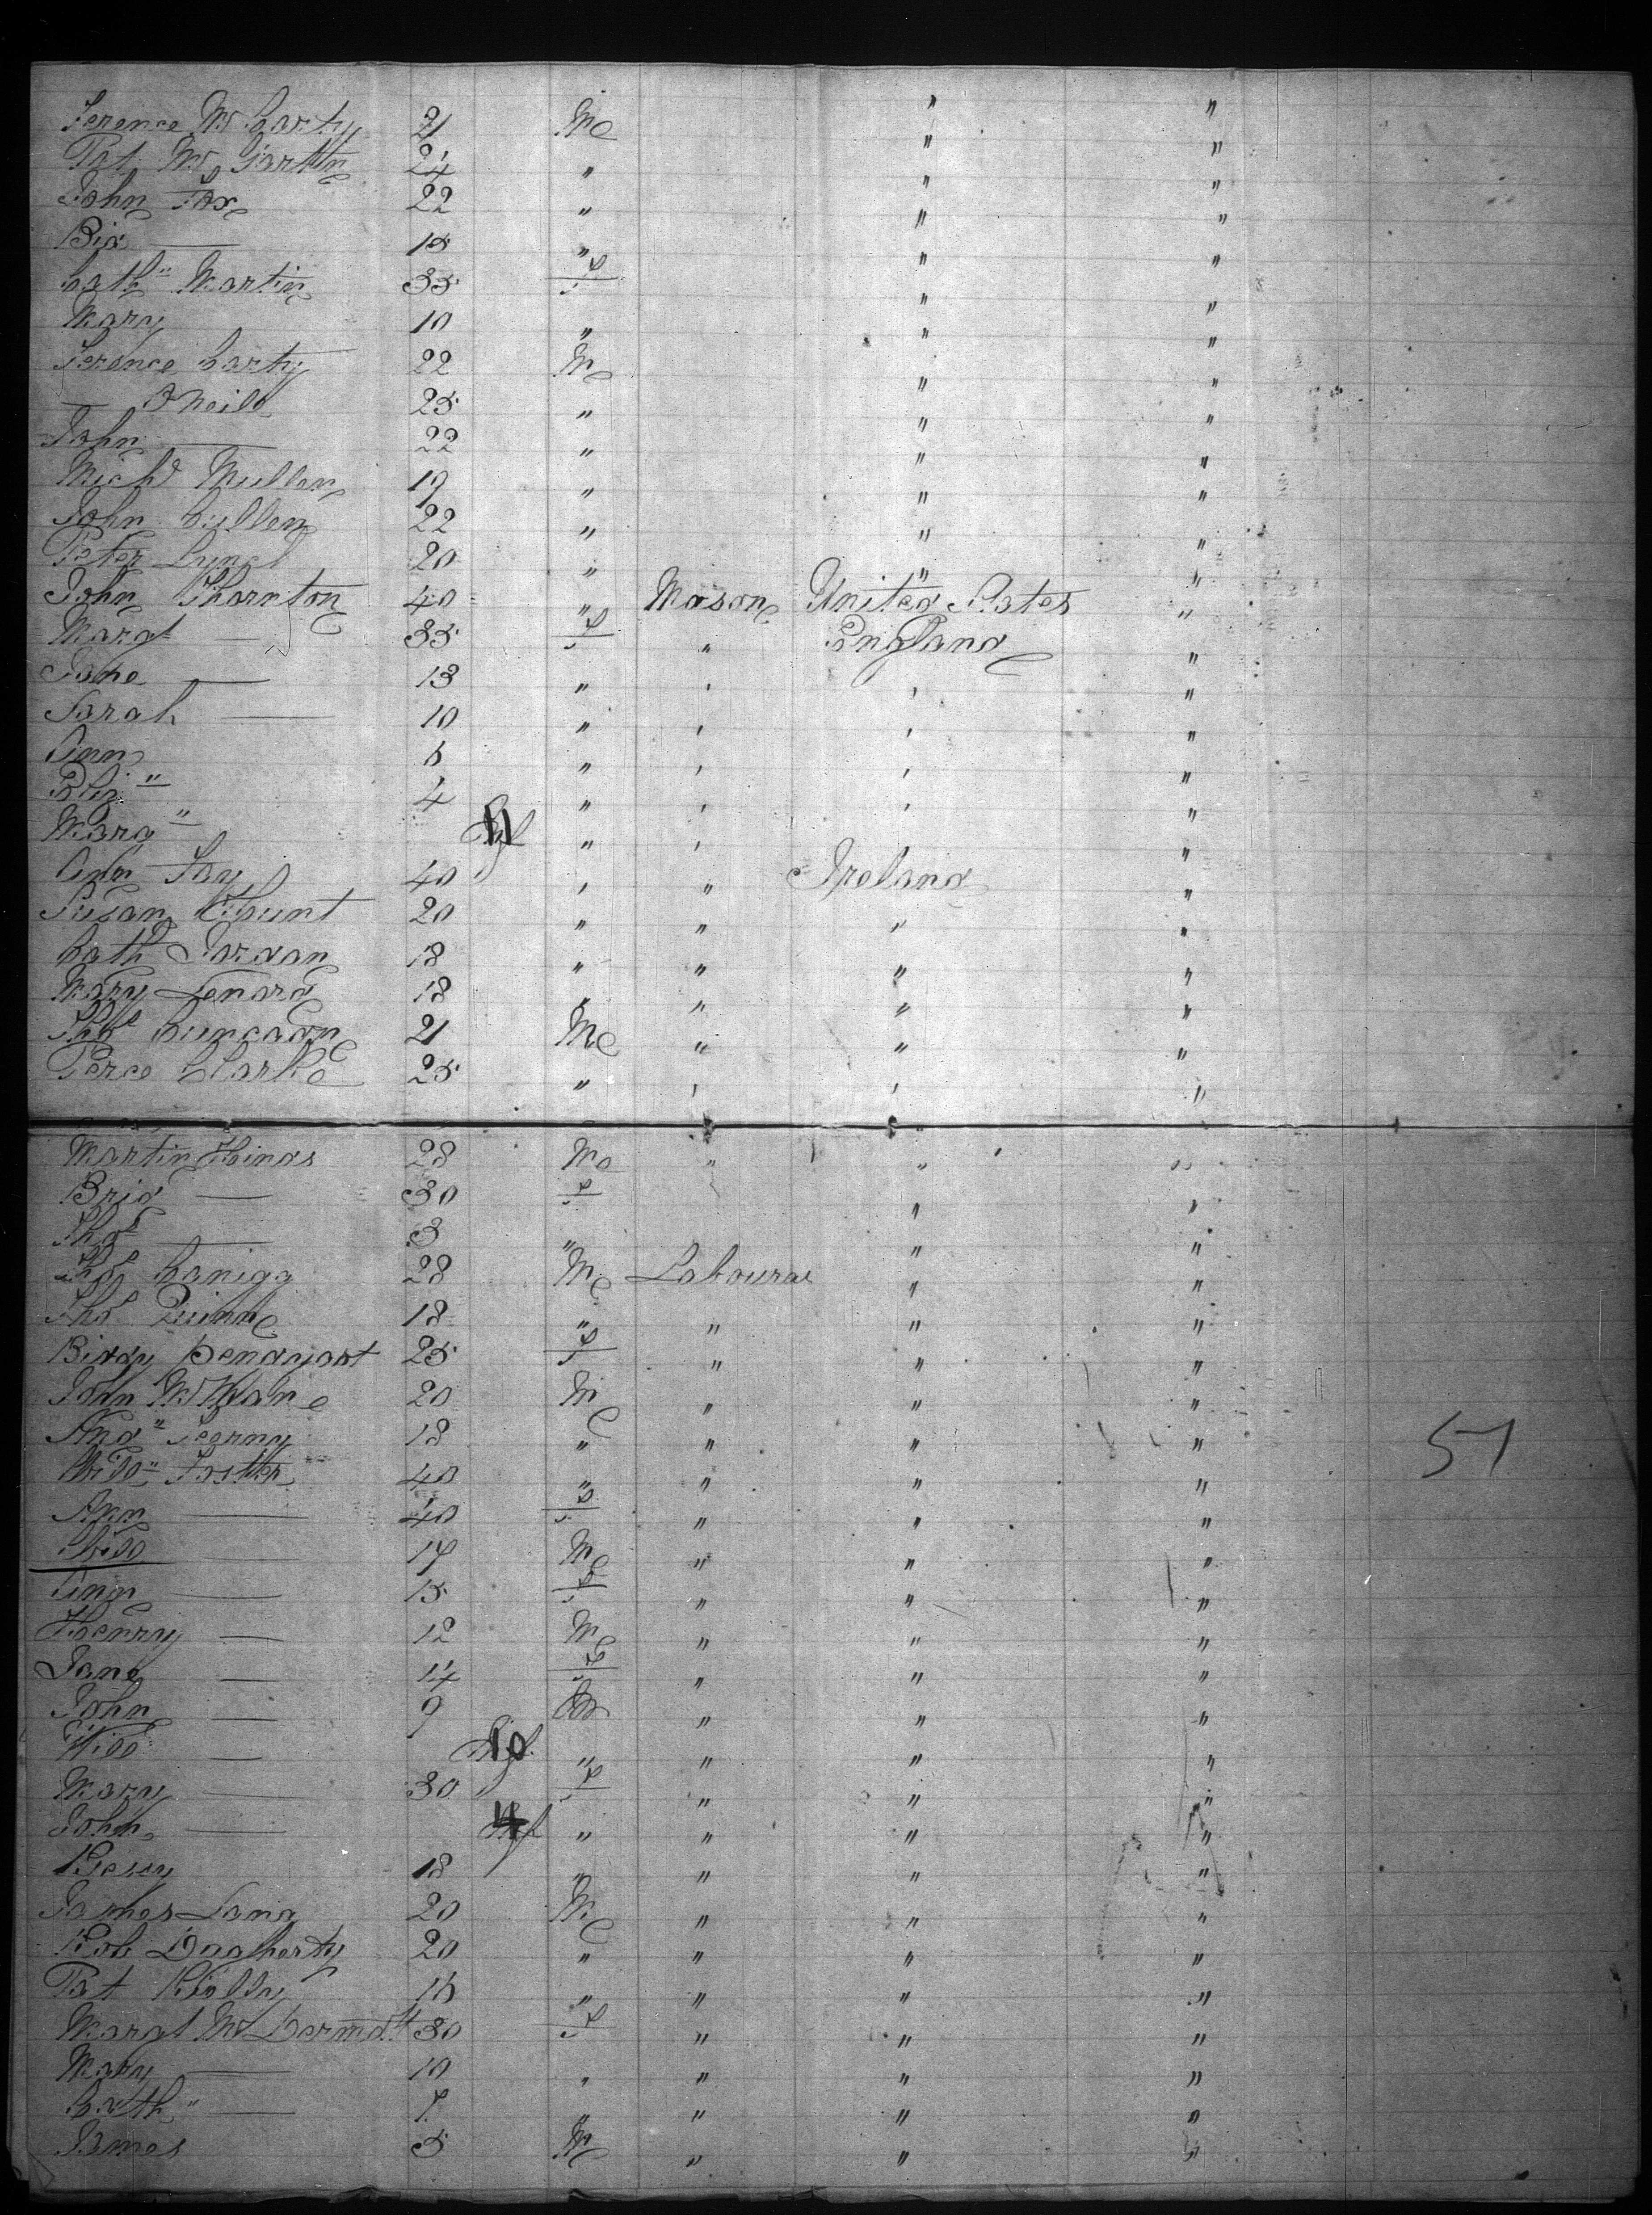 " "
Terence McCarty 21 M "  "
Pat McGartln 24 " " "
John Fox 22 " " "
Bid — 18 " " "
Cath" Martin 35 F " "
Mary 10 " " "
Terence Carty 22 M " "
— O Neill 25 " " "
John — 22 " " "
Michl Mullen 19 " " "
John Cullen 22 " " "
Peter Lynch 20 " " "
John Thornton 40 " Mason United States "
Margt — 35 F " England "
Jane — 13 " " " "
Sarah — 10 " " " "
Ann 6 " " " "
Eliz " 4 " " " "
Marg " 11 Inf " "
Ann Fay 40 " " Ireland "
Susan Blunt 20 " " " "
Cath Jordan 18 " " " "
Mary Lenard 18 " " " "
Thos 21 M " " "
Perce Clarke 25 " " " "
Martin Hinds 28 M " " "
Brid — 30 F " "
Thos — 3 " " "
Thos Canigg 28 M Labourer " "
Thos Quinn 18 " " " "
Biddy 25 F " " "
John 20 M " " "
And" 18 " " " "
Foster 40 " " " "
Ann — 40 F " " "
— 17 M " " "
Ann — 15 F " " "
Henry — 12 M " " "
Jane — 14 F " " "
John — 9 M " " "
Will — 10 Inf " " " "
Mary — 30 F " " "
John — 4 Inf " " " "
Bessy 18 " " " "
James Lang 20 M " " "
Rob Dagherty 20 " " " "
Pat Kielly 16 " " " "
Margt McDermott 30 F " " "
Mary — 10 " " " "
Cath" — 7 " " " "
James 5 M " " "
51